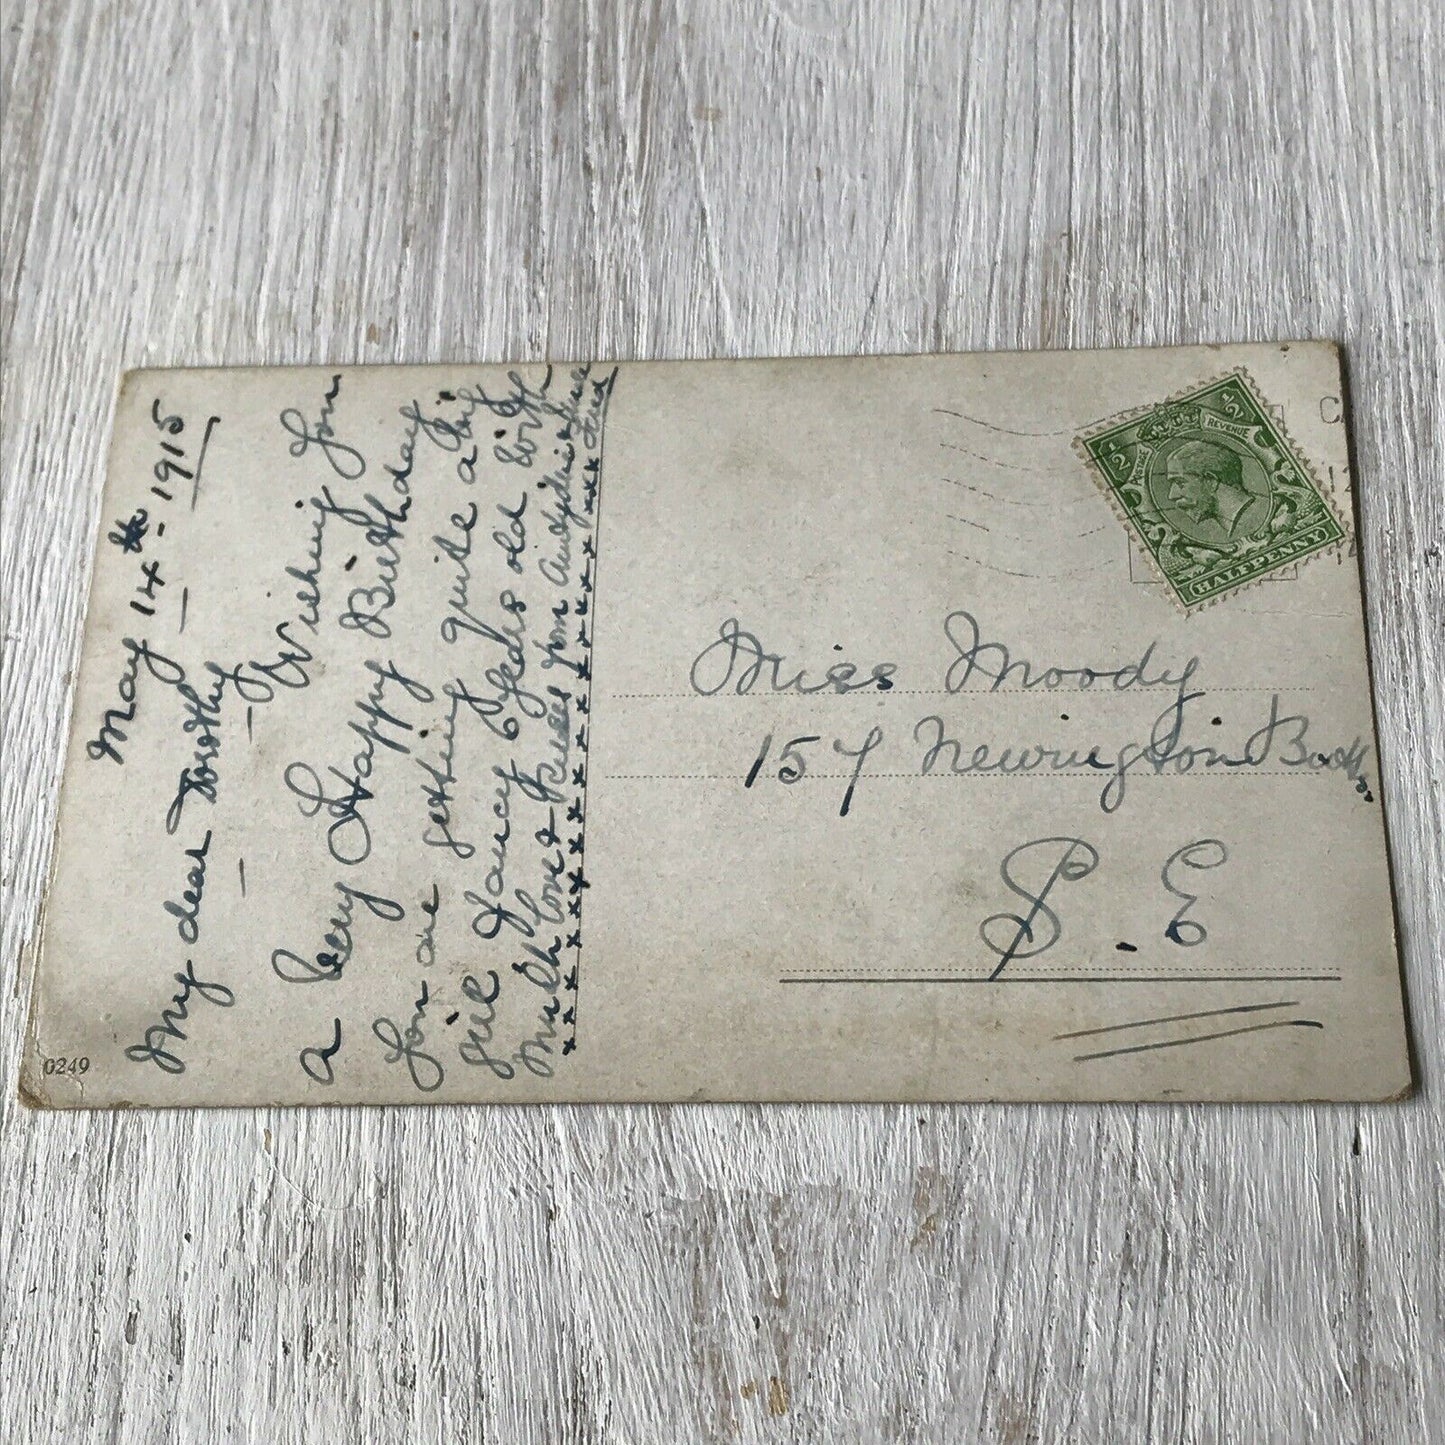 May 14th - 1915
My dear Dorothy
Wishing you
a Very Happy Birthday
you are getting quite a big
girl fancy 6 years old with
much love & kisses from
x x x x x x x x x x x x x x x x x x x
Miss Moody
157 Newington Butts
S.E
POSTAGE
REVENUE
½
½
HALFPENNY
0249